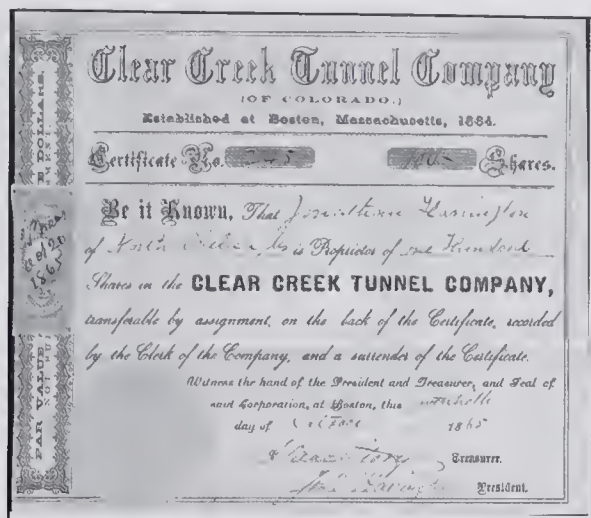 Clear Creek Tunnel Company
(OF COLORADO.)
Established at Boston, Massachusetts, 1864.
Certificate No. 245 100 Shares.
Be it Known, That Jonathan Harrington
of North is Proprietor of one Hundred
Shares in the CLEAR CREEK TUNNEL COMPANY,
transferable by assignment, on the back of the Certificate, recorded
by the Clerk of the Company, and a surrender of the Certificate.
Witness the hand of the President and Treasurer, and Seal of
said Corporation, at Boston, this
day of 1865
Treasurer.
President.
DOLLARS.
PAR VALUE
1865